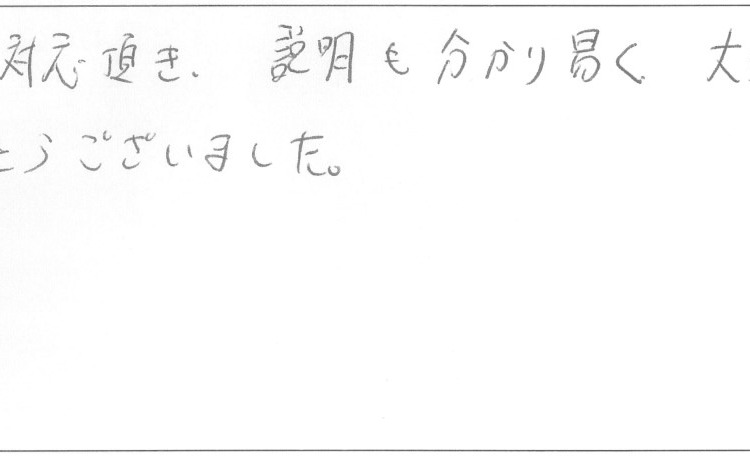 対応頂き、説明も分かり易く 大
とうございました。